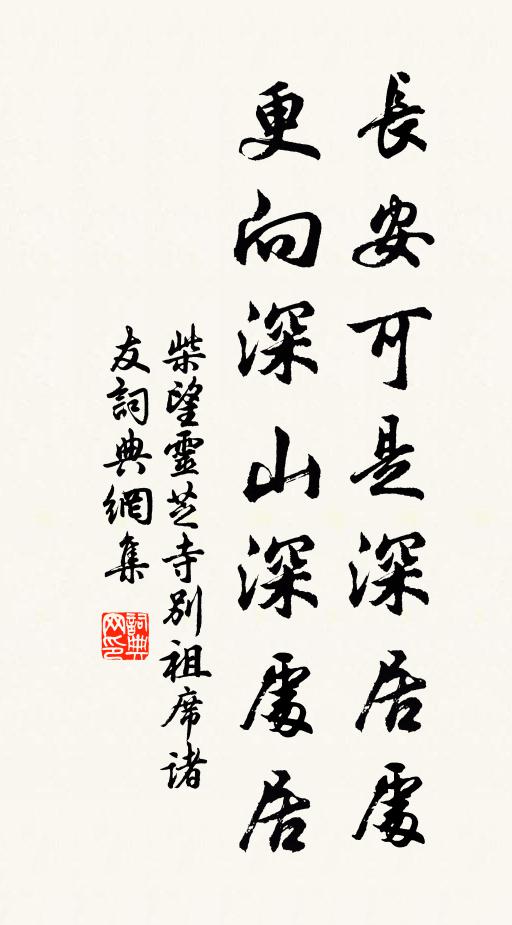 長安可是深居處
更向深山深處居
柴望靈芝寺別祖席諸
友詞典網集
詞典网印